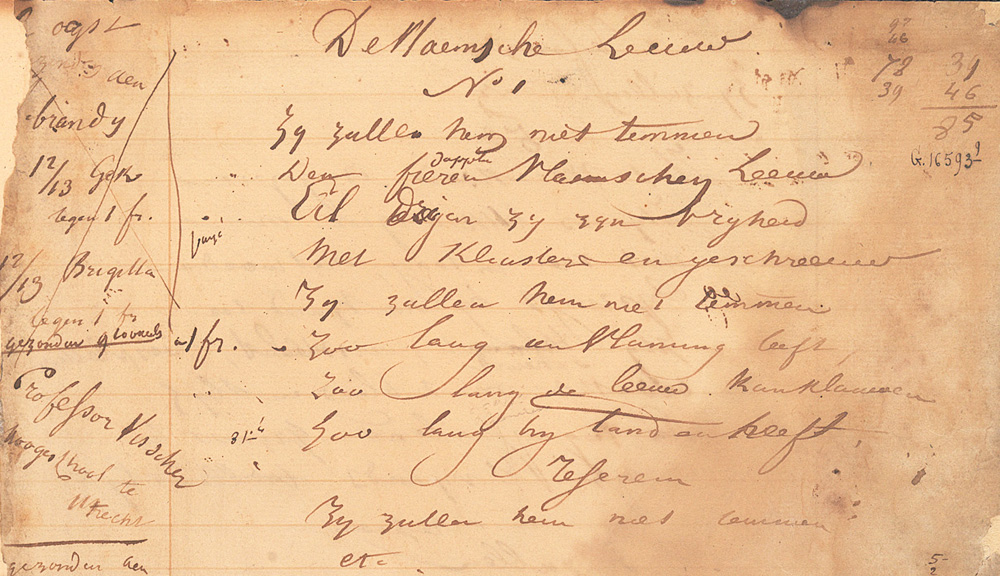 ogst
aen
brandy
12/13
tegen 1 fr.
12/13 Brigitta
tegen 1 fr
gezonden
Professor Visscher
hoogeschool te
Utrecht
gezonden aen
De Vlaemsche Leeuw
No 1
Zy zullen hem niet temmen
Den fieren dapplen Vlaemschen Leeuw
Al dreigen zy zyn vryheid
Met Kluisters en geschreeuw
Zy zullen hem niet temmen
1 fr. Zoo lang een Vlaming leeft,
Zoo lang de leeuw kan klauwen
Zoo lang hy tanden heeft,
Referein
Zy zullen hem niet temmen
etc
97
46
78 39
39 46
85
G. 16593
5-
2